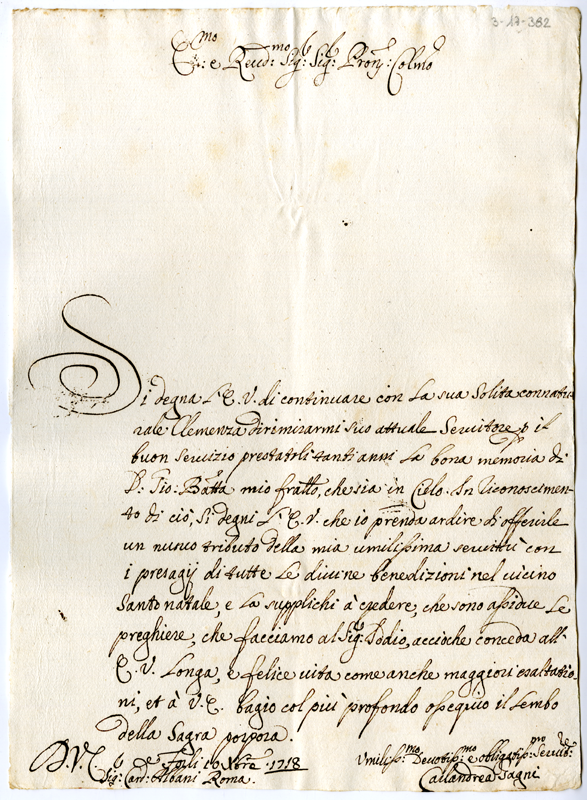 3-17-382
E.mo: e Reud:mo Sig.r Sig.r Pron: Colmo
Si degna L'E.V. di continuare con La sua Solita connatu
rale Clemenza di rimirarmi suo attuale Seruitore p il
buon seruizio prestatoli tanti anni La bona memoria di
D: Gio: Batta mio fratto, che sia in Cielo. In riconoscimen-
to di ciò, Si degni L'E.V. che io prenda ardire di offerirle
un nuouo tributo della mia umilissima seruitù con
i presagij di tutte Le diuine benedizioni nel uicino
Santo natale, e La supplichi à credere, che sono assidue Le
preghiere, che facciamo al Sig.r Iddio, accioche conceda all'
E.V. Longa, e felice uita come anche maggiori esaltatio
ni, et à V.E. bagio col più profondo ossequio il Lembo
della Sagra porpora.
D.V.E. Forlì 10 Xbre 1718
Sig: Card: Albani Roma.
Umiliss:mo Deuotiss:mo e obligatiss:mo Seruit:re
Callandrea Sagni